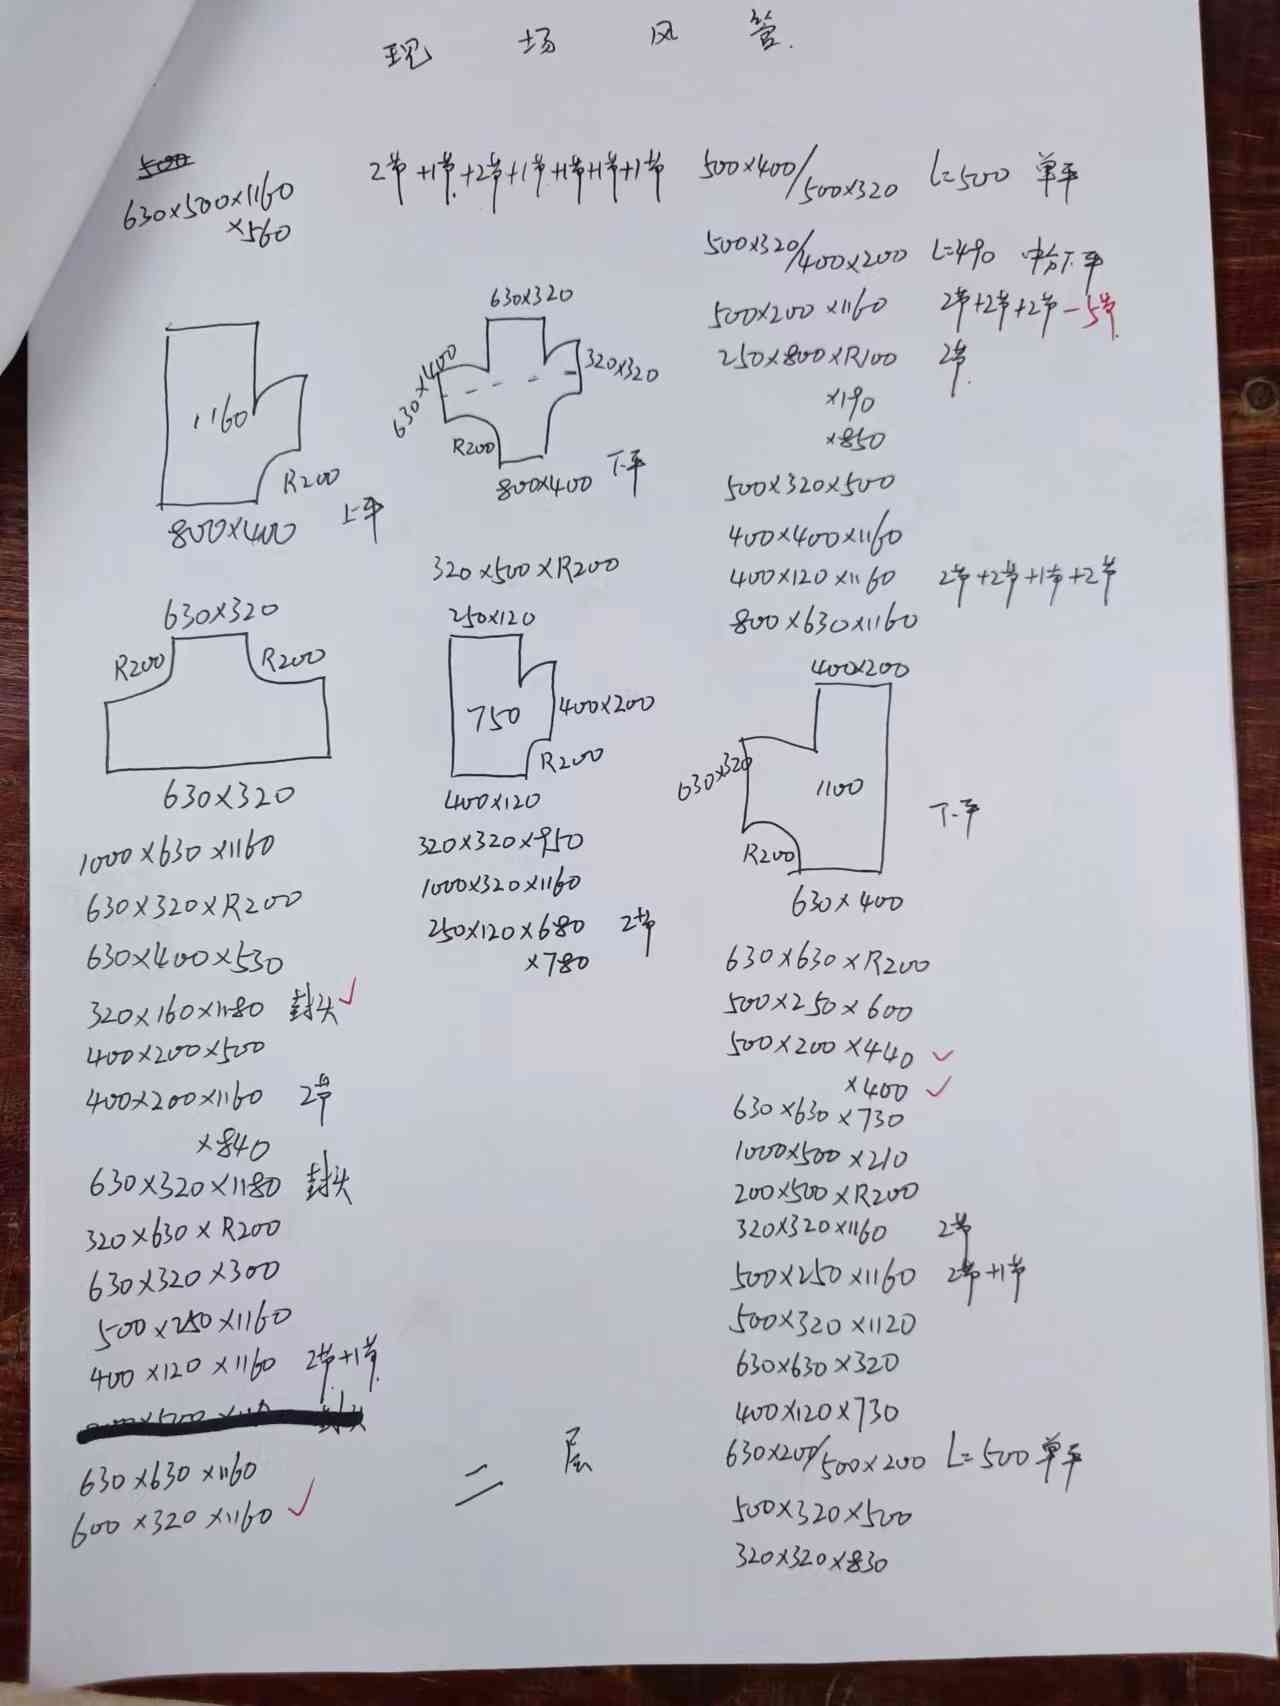 现场风管
500
630×500×1160 2节+1节+2节+1节+1节+1节+1节
×560
1160
R200
800×400 上平
630×320
630×400
320×320
R200
800×400 下平
320×500×R200
630×320
R200 R200
630×320
250×120
750
400×200
R200
400×120
1000×630×1160
630×320×R200
630×400×530
320×160×1180 封头 ✓
400×200×500
400×200×1160 2节
×840
630×320×1180 封头
320×630×R200
630×320×300
500×250×1160
400×120×1160 2节+1节
630×630×1160
600×320×1160 ✓
320×320×950
1000×320×1160
250×120×680 2节
×780
二层
500×400/500×320 L=500 单平
500×320/400×200 L=490 中分下平
500×200×1160 2节+2节+2节-5节
250×800×R100 2节
×190
×850
500×320×500
400×400×1160
400×120×1160 2节+2节+1节+2节
800×630×1160
400×200
630×320
1100
R200
630×400
下平
630×630×R200
500×250×600
500×200×440 ✓
×400 ✓
630×630×730
1000×500×210
200×500×R200
320×320×1160 2节
500×250×1160 2节+1节
500×320×1120
630×630×320
400×120×730
630×200/500×200 L=500 单平
500×320×500
320×320×830